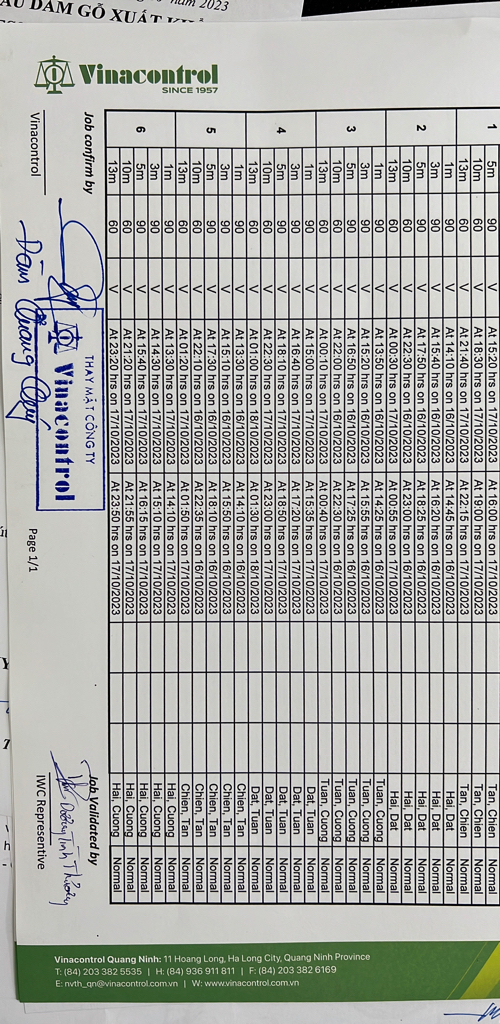 năm 2023
DĂM GỖ XUẤT
Vinacontrol
SINCE 1957
1 5m 90 V hrs on 17/10/2023 hrs on 17/10/2023 Tan, Chien Normal
10m 60 V At 18:30 hrs on 17/10/2023 At 19:00 hrs on 17/10/2023 Tan, Chien Normal
13m 60 V At 21:40 hrs on 17/10/2023 At 22:15 hrs on 17/10/2023 Tan, Chien Normal
2 1m 90 V At 14:10 hrs on 16/10/2023 At 14:45 hrs on 16/10/2023 Hai, Dat Normal
3m 90 V At 15:40 hrs on 16/10/2023 At 16:20 hrs on 16/10/2023 Hai, Dat Normal
5m 90 V At 17:50 hrs on 16/10/2023 At 18:25 hrs on 16/10/2023 Hai, Dat Normal
10m 60 V At 22:30 hrs on 16/10/2023 At 23:00 hrs on 16/10/2023 Hai, Dat Normal
13m 60 V At 00:30 hrs on 17/10/2023 At 00:55 hrs on 17/10/2023 Hai, Dat Normal
3 1m 90 V At 13:50 hrs on 16/10/2023 At 14:25 hrs on 16/10/2023 Tuan, Cuong Normal
3m 90 V At 15:20 hrs on 16/10/2023 At 15:55 hrs on 16/10/2023 Tuan, Cuong Normal
5m 90 V At 16:50 hrs on 16/10/2023 At 17:25 hrs on 16/10/2023 Tuan, Cuong Normal
10m 60 V At 22:00 hrs on 16/10/2023 At 22:30 hrs on 16/10/2023 Tuan, Cuong Normal
13m 60 V At 00:10 hrs on 17/10/2023 At 00:40 hrs on 17/10/2023 Tuan, Cuong Normal
4 1m 90 V At 15:00 hrs on 17/10/2023 At 15:35 hrs on 17/10/2023 Dat, Tuan Normal
3m 90 V At 16:40 hrs on 17/10/2023 At 17:20 hrs on 17/10/2023 Dat, Tuan Normal
5m 90 V At 18:10 hrs on 17/10/2023 At 18:50 hrs on 17/10/2023 Dat, Tuan Normal
10m 60 V At 22:30 hrs on 17/10/2023 At 23:00 hrs on 17/10/2023 Dat, Tuan Normal
13m 60 V At 01:00 hrs on 18/10/2023 At 01:30 hrs on 18/10/2023 Dat, Tuan Normal
5 1m 90 V At 13:30 hrs on 16/10/2023 At 14:10 hrs on 16/10/2023 Chien, Tan Normal
3m 90 V At 15:10 hrs on 16/10/2023 At 15:50 hrs on 16/10/2023 Chien, Tan Normal
5m 90 V At 17:30 hrs on 16/10/2023 At 18:10 hrs on 16/10/2023 Chien, Tan Normal
10m 60 V At 22:10 hrs on 16/10/2023 At 22:35 hrs on 16/10/2023 Chien, Tan Normal
13m 60 V At 01:20 hrs on 17/10/2023 At 01:50 hrs on 17/10/2023 Chien, Tan Normal
6 1m 90 V At 13:30 hrs on 17/10/2023 At 14:10 hrs on 17/10/2023 Hai, Cuong Normal
3m 90 V At 14:30 hrs on 17/10/2023 At 15:10 hrs on 17/10/2023 Hai, Cuong Normal
5m 90 V At 15:40 hrs on 17/10/2023 At 16:15 hrs on 17/10/2023 Hai, Cuong Normal
10m 60 V At 21:20 hrs on 17/10/2023 At 21:55 hrs on 17/10/2023 Hai, Cuong Normal
13m 60 V At 23:20 hrs on 17/10/2023 At 23:50 hrs on 17/10/2023 Hai, Cuong Normal
Job confirm by
Job Validated by
THAY MẶT CÔNG TY
Vinacontrol
Đàm Quang
Dương Tình
Vinacontrol
IWC Representative
Page 1/1
Vinacontrol Quang Ninh: 11 Hoang Long, Ha Long City, Quang Ninh Province
T: (84) 203 382 5535 | H: (84) 936 911 811 | F: (84) 203 382 6169
E: nvth_qn@vinacontrol.com.vn | W: www.vinacontrol.com.vn